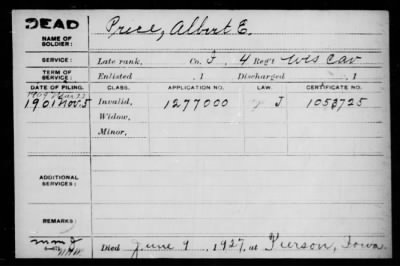 DEAD
NAME OF SOLDIER: Price, Albert E.
SERVICE: Late rank, Co. J, 4 Reg't Wis Cav
TERM OF SERVICE: Enlisted , 1 Discharged , 1
DATE OF FILING. CLASS. APPLICATION NO. LAW. CERTIFICATE NO.
1901 Nov. 5 Invalid, 1277000 J 1053725
Widow,
Minor,
ADDITIONAL SERVICES:
REMARKS:
Died June 9, 1927, at Pierson, Iowa.